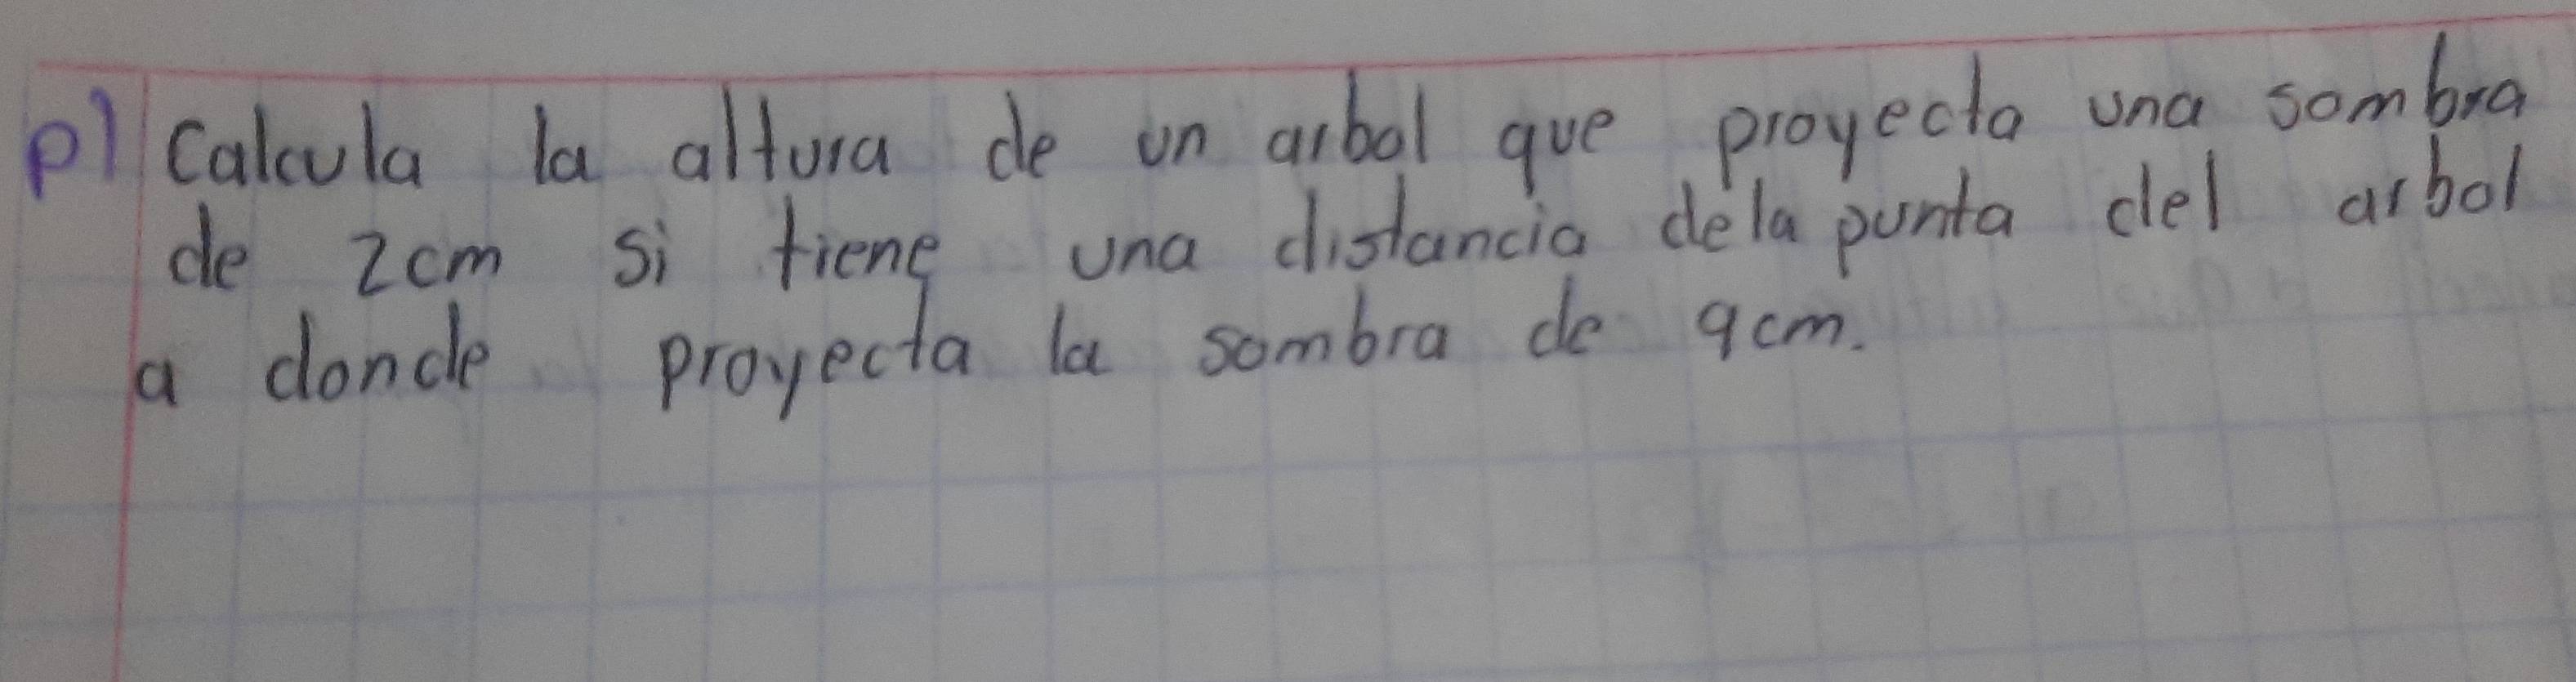 P) Calcula la altura de un arbol que proyecta una sombra
de 2cm si tiene una distancia dela punta del arbol
a donde proyecta la sombra de 9cm.